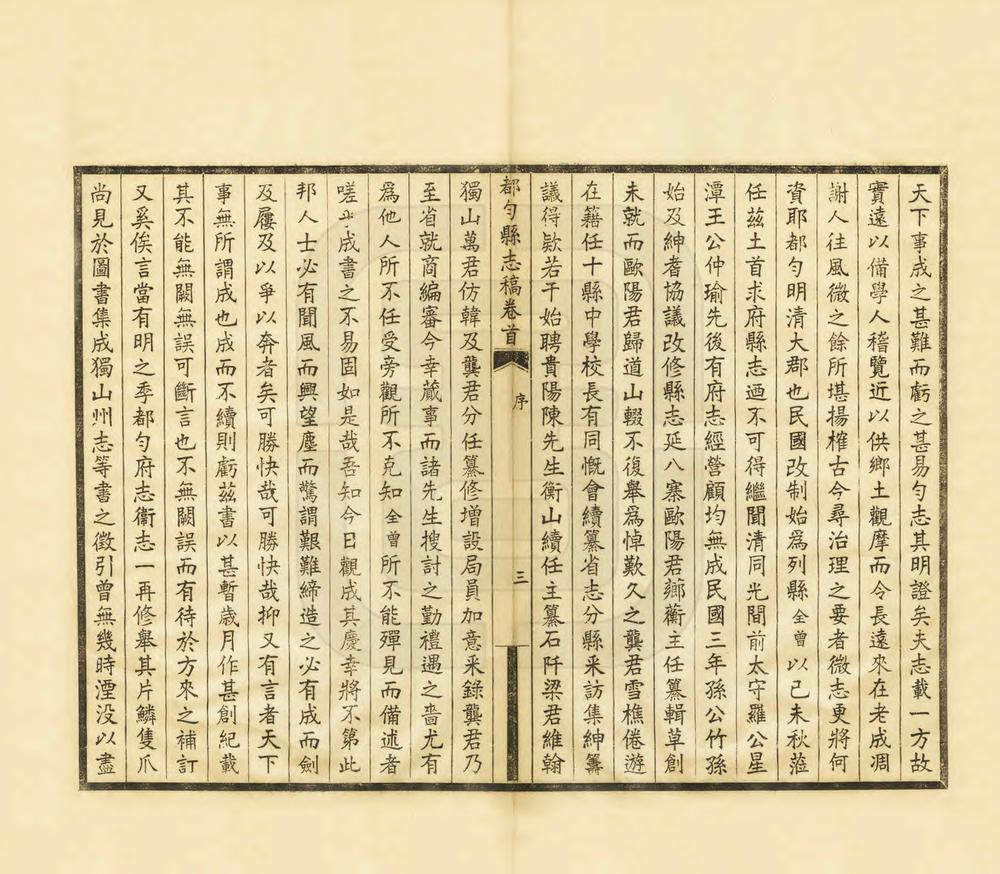 天下事成之甚難而虧之甚易勻志其明證矣夫志載一方故
實遠以備學人稽覽近以供鄉土觀摩而令長遠來在老成凋
謝人往風微之餘所堪揚榷古今尋治理之要者微志更將何
資耶都勻明清大郡也民國改制始為列縣全曾以己未秋蒞
任茲土首求府縣志迺不可得繼聞清同光間前太守羅公星
潭王公仲瑜先後有府志經營顧均無成民國三年孫公竹孫
始及紳耆協議改修縣志延八寨歐陽君薌蘅主任纂輯草創
未就而歐陽君歸道山輟不復舉為悼歎久之龔君雪樵倦遊
在籍任十縣中學校長有同慨會續纂省志分縣采訪集紳籌
議得欵若干始聘貴陽陳先生衡山續任主纂石阡梁君維翰
都勻縣志稿卷首 序 三
獨山萬君仿韓及龔君分任纂修增設局員加意采錄龔君乃
至省就商編審今幸蕆事而諸先生搜討之勤禮遇之嗇尤有
為他人所不任受旁觀所不克知全曾所不能殫見而備述者
嗟乎成書之不易固如是哉吾知今日觀成其慶幸將不第此
邦人士必有聞風而興望塵而驚謂艱難締造之必有成而劍
及屨及以爭以奔者矣可勝快哉可勝快哉抑又有言者天下
事無所謂成也成而不續則虧茲書以甚暫歲月作甚創紀載
其不能無闕無誤可斷言也不無闕誤而有待於方來之補訂
又奚俟言當有明之季都勻府志衞志一再修舉其片鱗隻爪
尚見於圖書集成獨山州志等書之徵引曾無幾時湮没以盡